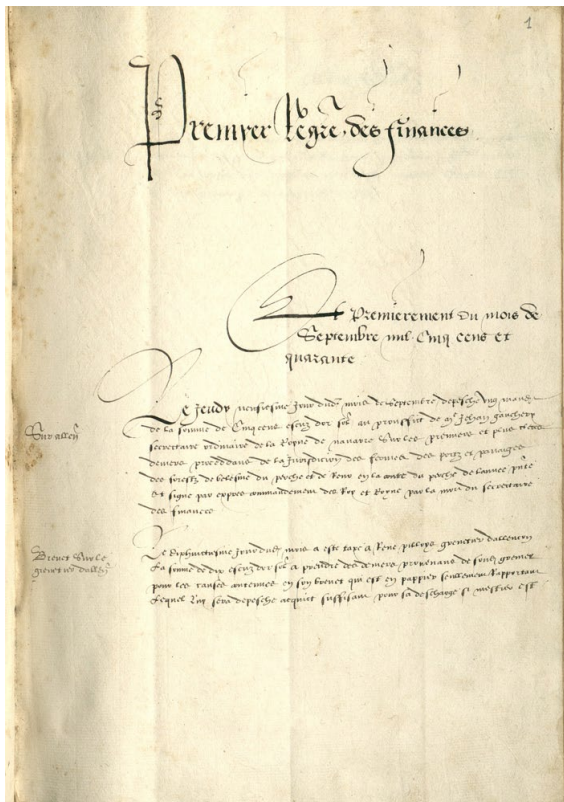 1
Premyer Regre des finances
Et Premierement du mois de
Septembre mil Cinq cens et
quarante
Le Jeudy neufiesme Jour dud mois de Septembre depesche ung mand
de la somme de Cinq cens escuz dor sol au prouffict de Me Jehan
Sur allen
secretaire ordinaire de la Royne de navarre Sur les premiers et plus clers
deniers procedans de la Jurisdicion des fermes des portz et passaiges
des forestz de belesme du perche et de Reno en la conte du perche de lannee pnte
Et signe par expres commandement des Roy et Royne par la main du secretaire
des finances
Le dixhuictiesme Jour dud mois a este taxe a Rene grenetier dallencon
Brevet Sur le
grenetier dallen
La somme de dix escuz dor sol a prendre des deniers provenans de sond grenier
pour les causes contenues en son brevet qui est en pappier seullement Rapportant
Lequel luy sera depesche acquict suffisant pour sa descharge si mestier est